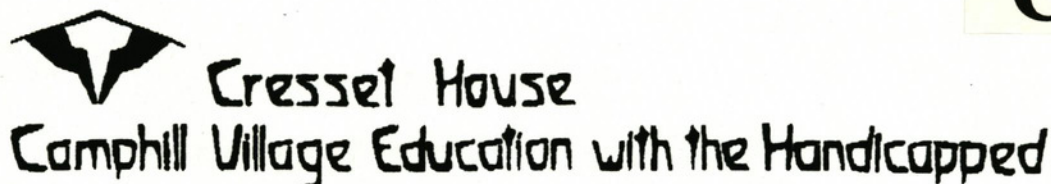 Cresset House
Camphill Village Education with the Handicapped